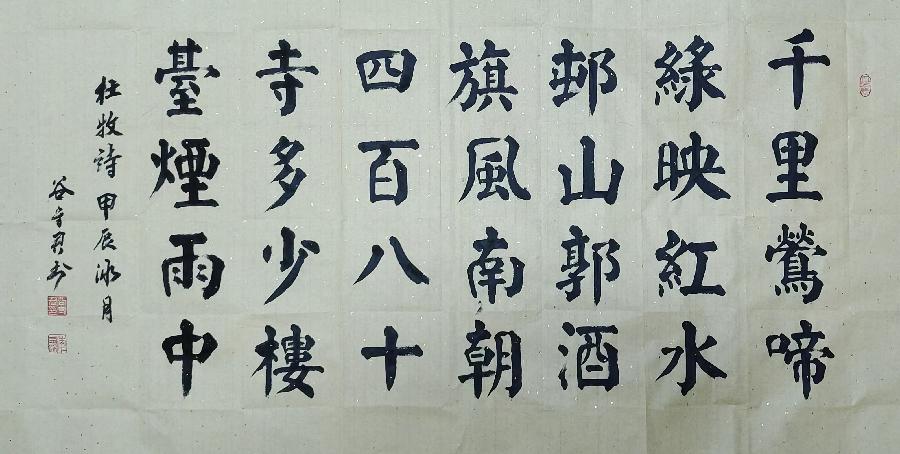 千里鶯啼
綠映紅水
邨山郭酒
旗風南朝
四百八十
寺多少樓
臺煙雨中
杜牧詩甲辰冰月
谷守君书